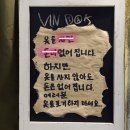 VIN DOK
옷을 사면
돈이 없어집니다.
하지만,
옷을 사지 않아도
돈은 없어 집니다.
여러분
옷을 포기하지 마세요.